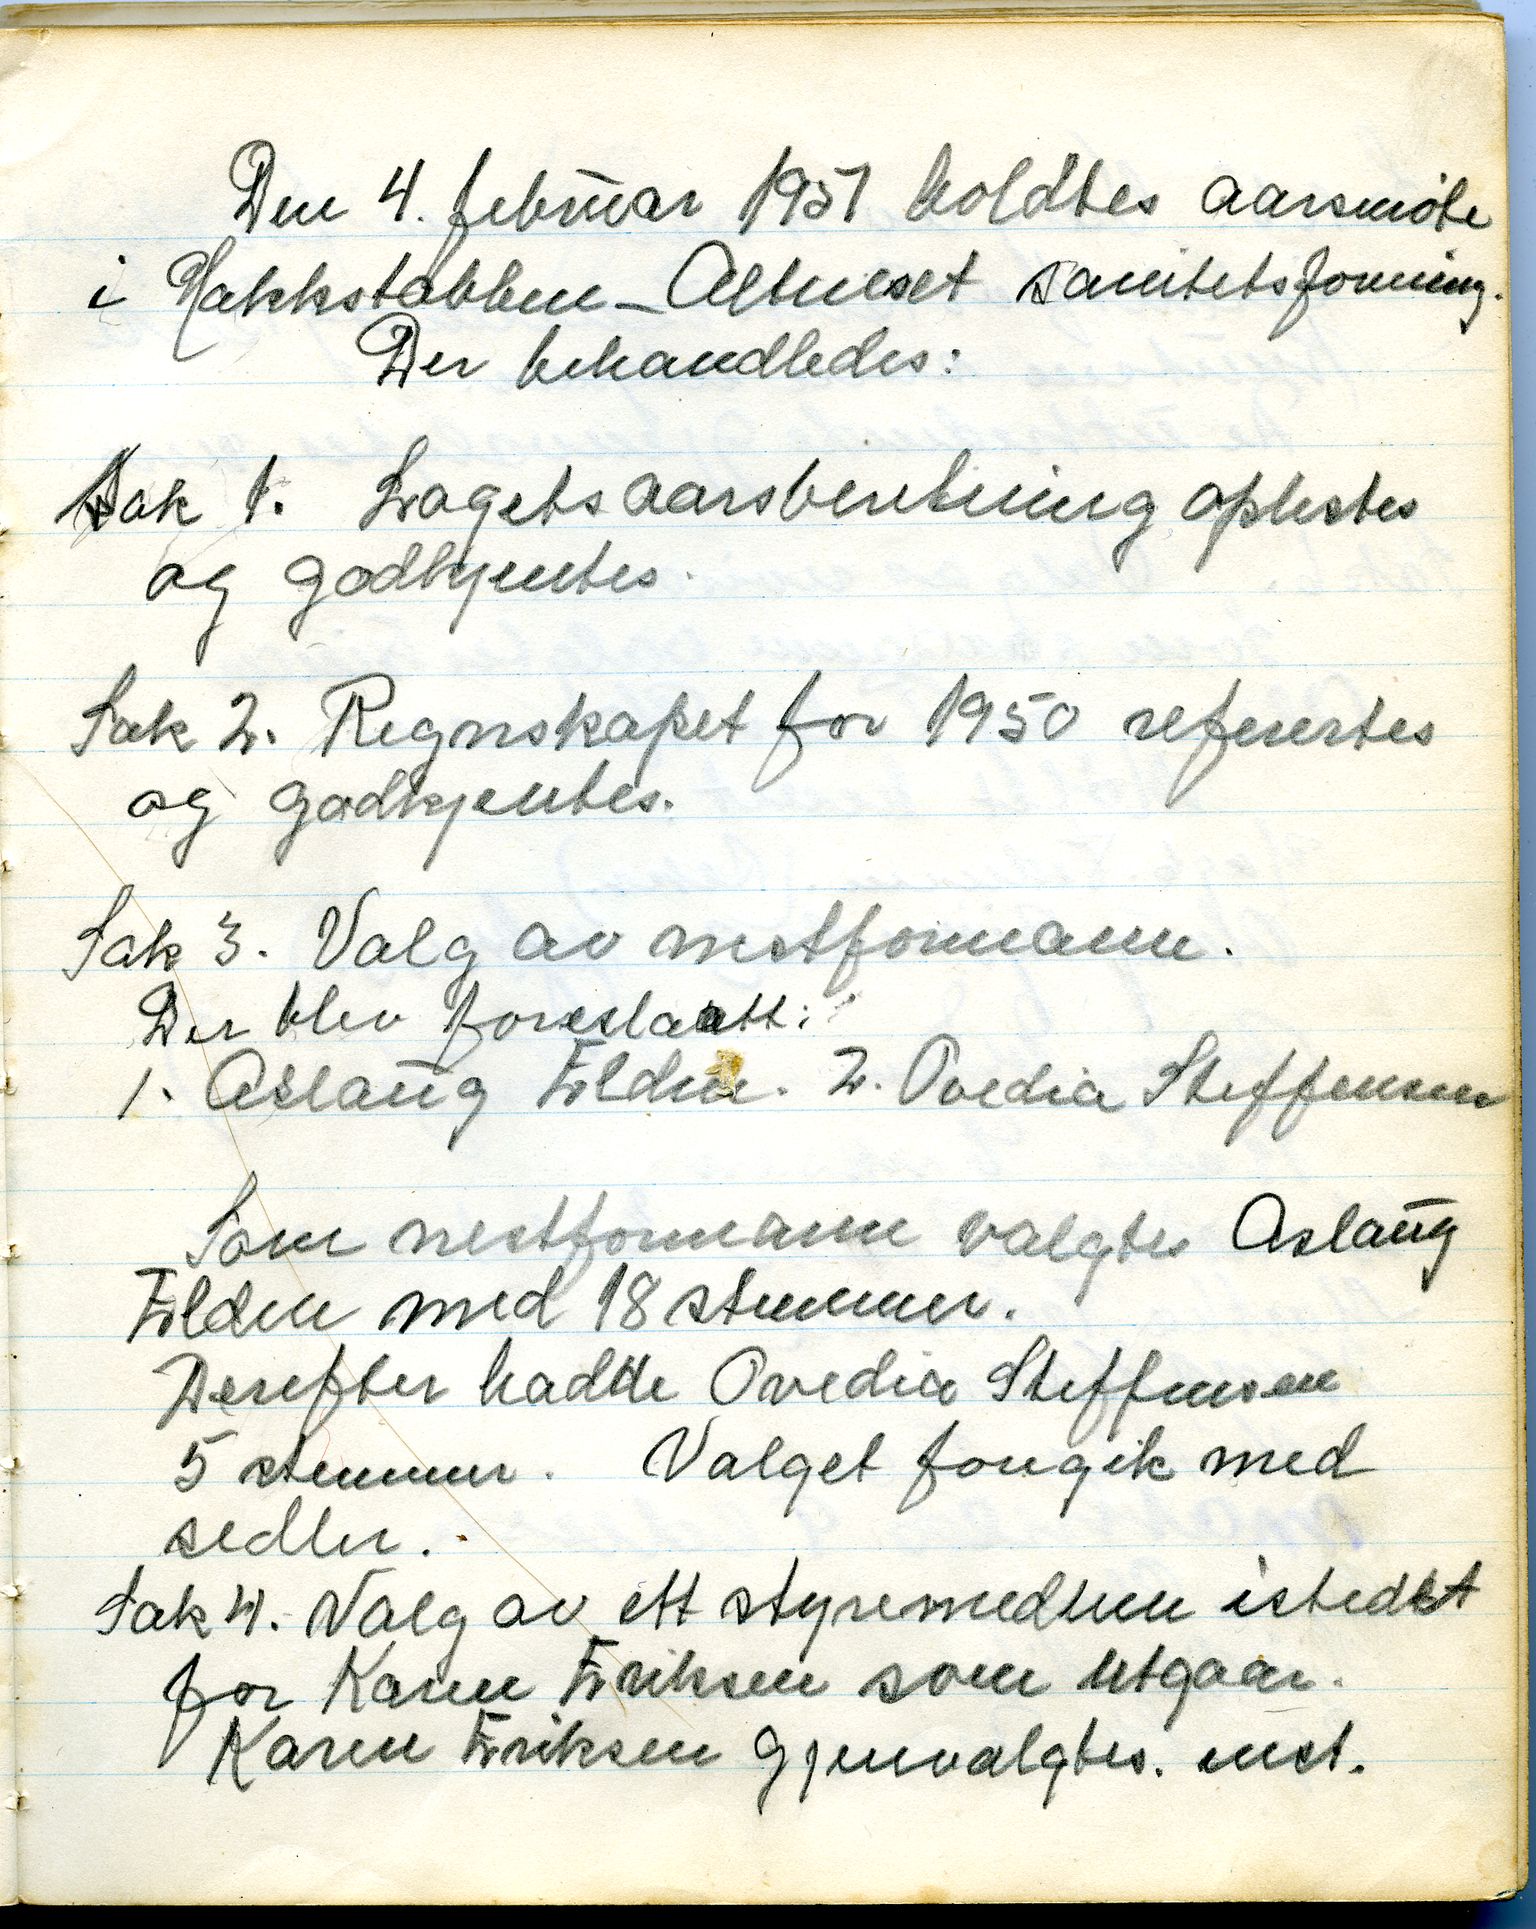 Den 4. februar 1951 holdtes aarsmöte
i Hakkstabben - Altneset sanitetsforening.
Der behandledes:
Sak 1. Lagets aarsberetning oplestes
og godkjentes.
Sak 2. Regnskapet for 1950 refesertes
og godkjentes.
Sak 3. Valg av nestformann.
Der blev foreslaatt:
1. Aslaug Elden. 2. Ovedia Steffensen
Som nestformann valgtes Aslaug
Elden med 18 stemmer.
Derefter hadde Ovedia Steffensen
5 stemmer. Valget foregik med
sedler.
Sak 4. Valg av ett styremedlem istedet
for Karen Eriksen som utgaar.
Karen Eriksen gjenvalgtes. enst.